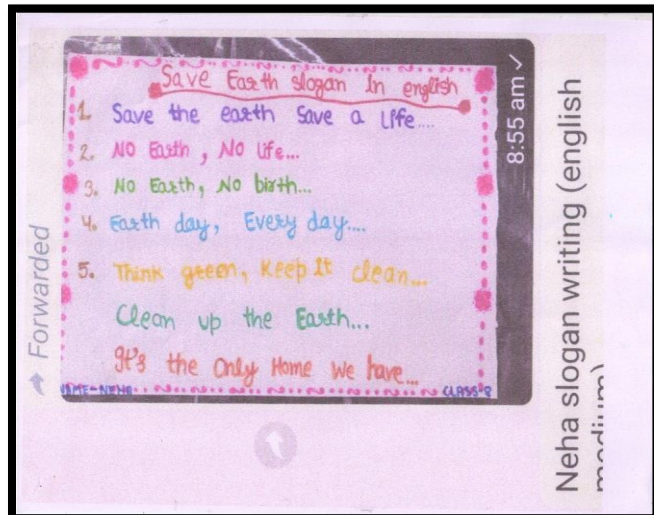 Forwarded
Save Earth slogan In english
1. Save the earth Save a Life....
2. No Earth, No life...
3. No Earth, No birth...
4. Earth day, Every day....
5. Think green, Keep It clean...
Clean up the Earth...
It's the Only Home We have...
NAME-NEHA
CLASS-8
8:55 am
Neha slogan writing (english
medium)